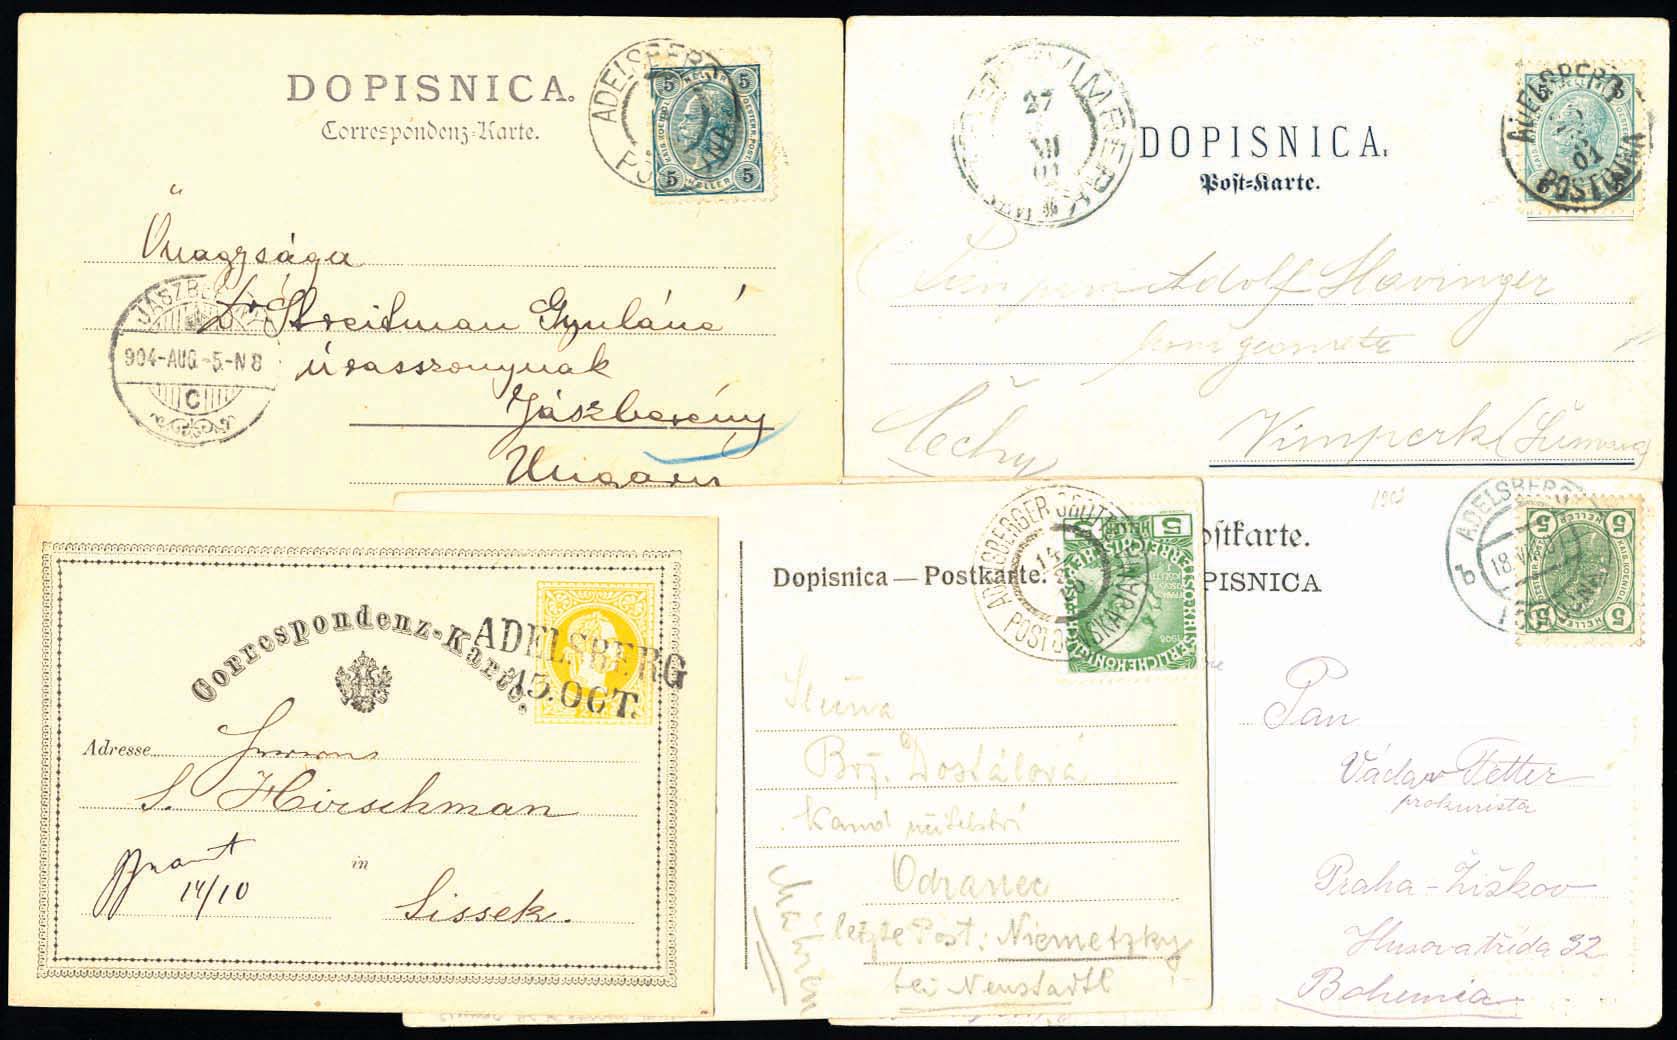 DOPISNICA.
Correspondenz-Karte.
ADELSBERG
5 5
5 HELLER 5
Nagysága
Dr Streitman Gyuláné
úrasszonynak
Jászberény
Ungarn
904-AUG.-5.-N8
C
DOPISNICA.
Post-Karte.
27
VII
01
ADELSBERG
01
POSTOJNA
Adolf Slavinger
Čechy
Vimperk (Šumava)
Correspondenz-Karte.
ADELSBERG
13.OCT.
Adresse
Herrn
S. Hirschman
14/10
in
Sissek.
Dopisnica — Postkarte.
ADELSBERGER GROTTE
POSTOJNSKA JAMA
14
5
1908
Slečna
Bož. Dostálová
Kand učitelství
Odranec
letzte Post: Niemetzky
bei Neustadtl
Mähren
ostkarte.
PISNICA
1908
ADELSBERG
18
b
5 HELLER 5
5 HELLER 5
Pan
Václav Tetter
prokurista
Praha - Žižkov
Husova třída 32
Bohemia